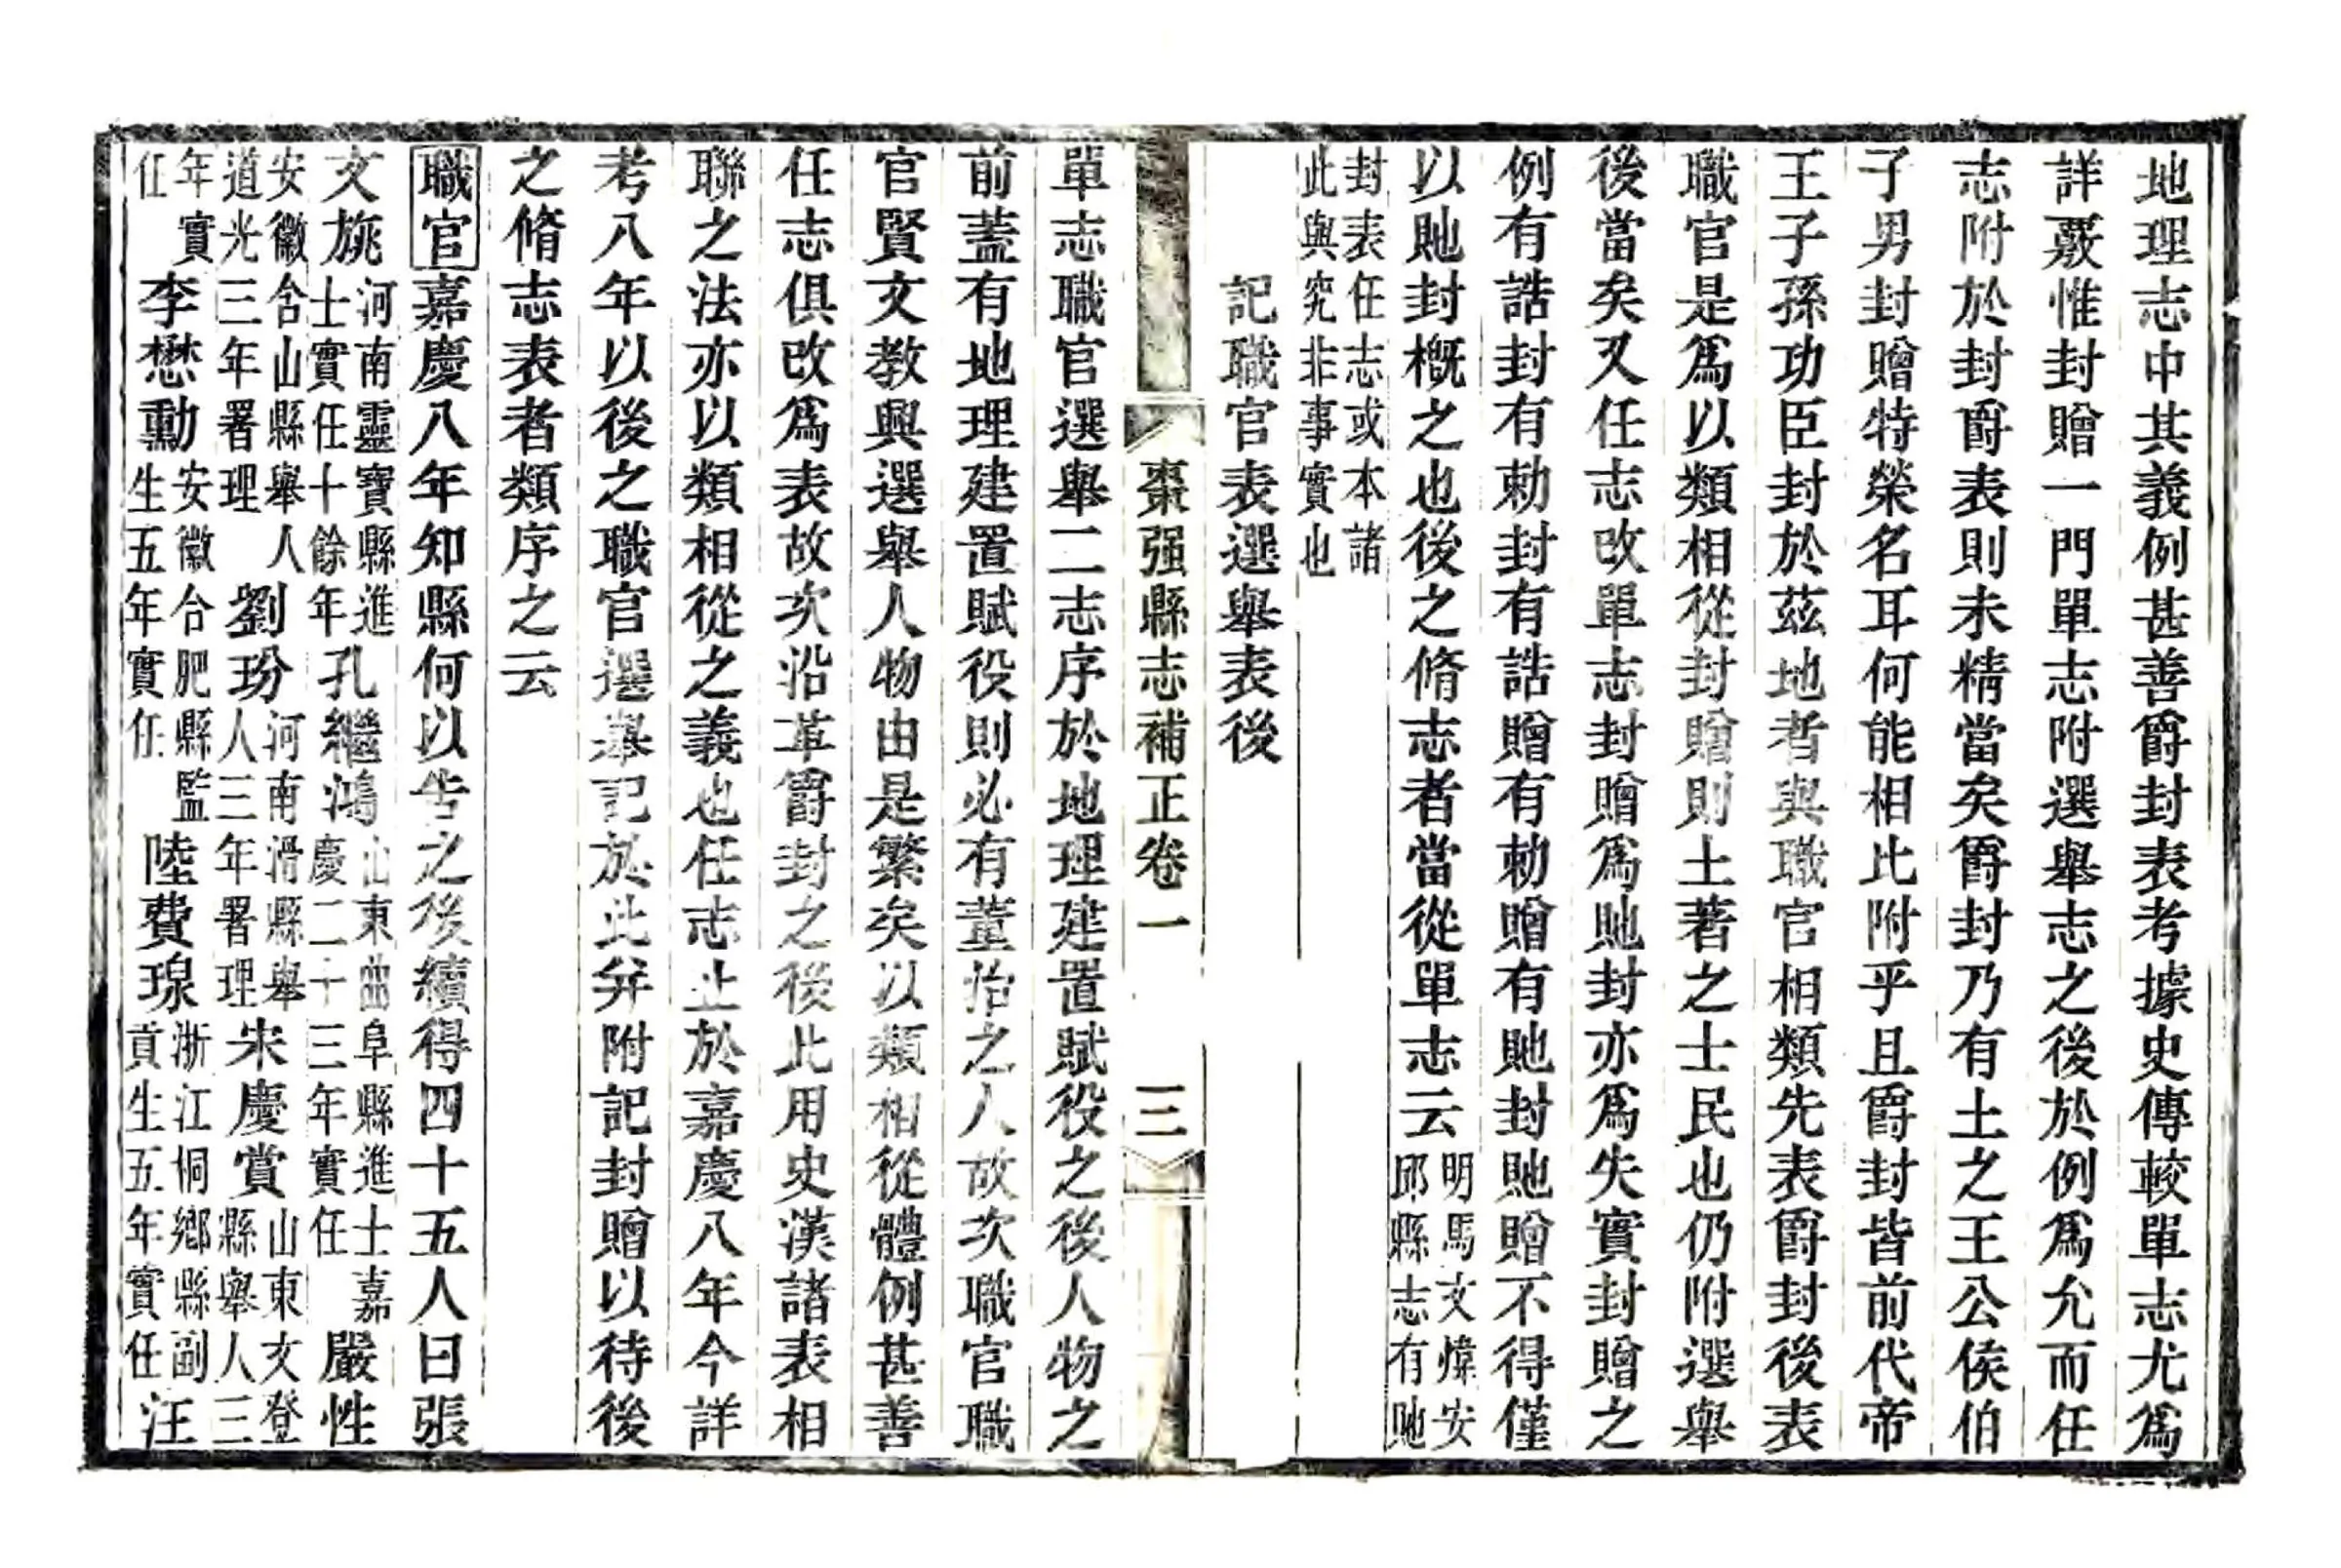 地理志中其義例甚善爵封表考據史傳較單志尤爲
詳覈惟封贈一門單志附選舉志之後於例爲允而任
志附於封爵表則未精當矣爵封乃有土之王公侯伯
子男封贈特榮名耳何能相比附乎且爵封皆前代帝
王子孫功臣封於茲地者與職官相類先表爵封後表
職官是爲以類相從封贈則土著之士民也仍附選舉
後當矣又任志改單志封贈爲貤封亦爲失實封贈之
例有誥封有勅封有誥贈有勅贈有貤封貤贈不得僅
以貤封槪之也後之脩志者當從單志云明馬文煒安
邱縣志有貤
封表任志或本諸
此與究非事實也
記職官表選舉表後
棗强縣志補正卷一 三
單志職官選舉二志序於地理建置賦役之後人物之
前蓋有地理建置賦役則必有董治之人故次職官職
官賢文教興選舉人物由是繁矣以類相從體例甚善
任志俱改爲表故次沿革爵封之後此用史漢諸表相
聯之法亦以類相從之義也任志止於嘉慶八年今詳
考八年以後之職官選舉記於此并附記封贈以待後
之脩志表者類序之云
職官嘉慶八年知縣何以告之後續得四十五人曰張
文旐河南靈寶縣進士實任十餘年孔繼鴻山東曲阜縣進士嘉慶二十三年實任嚴性
安徽含山縣舉人道光三年署理劉玢河南滑縣舉人三年署理宋慶賞山東文登縣舉人三
年實任李懋勳安徽合肥縣監生五年實任陸費瑔浙江桐鄉縣副貢生五年實任汪